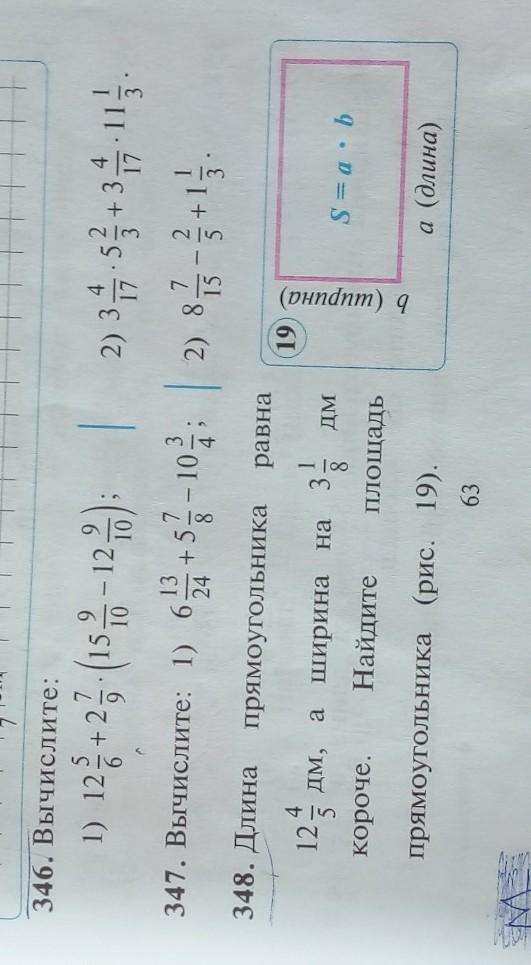 346. Вычислите:
1) 12 5/6 + 2 7/9 · (15 9/10 − 12 9/10);
2) 3 4/17 · 5 2/3 + 3 4/17 · 11 1/3.
347. Вычислите: 1) 6 13/24 + 5 7/8 − 10 3/4;
2) 8 7/15 − 2/5 + 1 1/3.
348. Длина прямоугольника равна
12 4/5 дм, а ширина на 3 1/8 дм
короче. Найдите площадь
прямоугольника (рис. 19).
19
b (ширина)
S = a · b
a (длина)
63